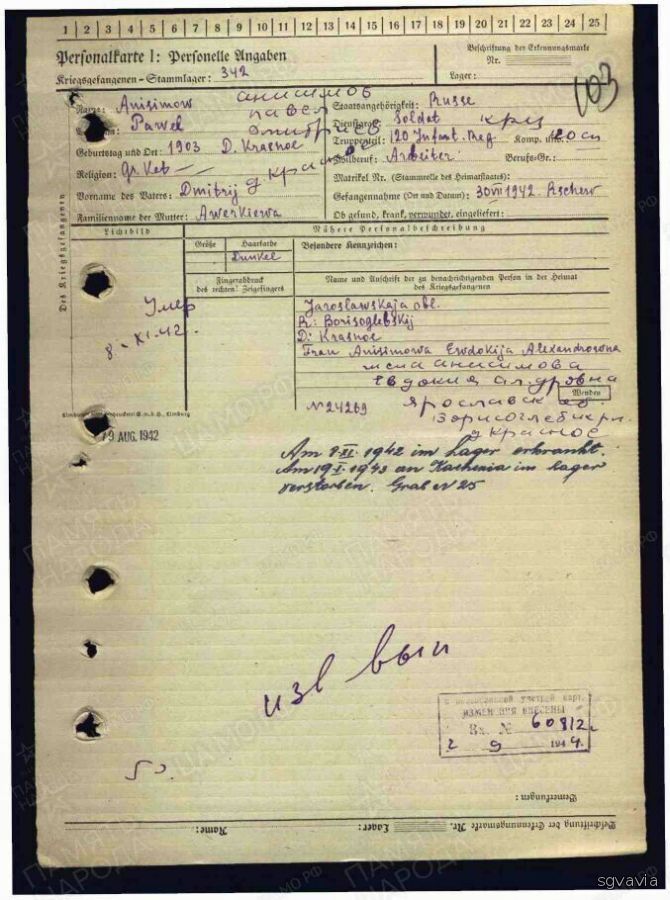 1 2 3 4 5 6 7 8 9 10 11 12 13 14 15 16 17 18 19 20 21 22 23 24 25
Personalkarte I: Personelle Angaben
Kriegsgefangenen-Stammlager: 342
Beschriftung der Erkennungsmarke
Nr.
Lager:
103
Name: Anisimow
Анисимов
Pawel
Павел
Дмитриев
Geburtstag und Ort: 1903 D. Krasnoe
д Красное
Religion: Gr. Kat
Vorname des Vaters: Dmitrij
Familienname der Mutter: Awerkiewa
Staatsangehörigkeit: Russe
Dienstgrad: Soldat
Truppenteil: 120 Infant. Reg Komp. usw.:
Zivilberuf: Arbeiter Berufs-Gr.:
Matrikel Nr. (Stammrolle des Heimatstaates):
Gefangennahme (Ort und Datum): 30 VII 1942
Ob gesund, krank, verwundet eingeliefert:
Des Kriegsgefangenen
Lichtbild
Nähere Personalbeschreibung
Größe Haarfarbe Besondere Kennzeichen:
Dunkel
Fingerabdruck
des rechten! Zeigefingers
Name und Anschrift der zu benachrichtigenden Person in der Heimat
des Kriegsgefangenen
Умер
8. XI. 42.
Jaroslawskaja obl.
R: Borisoglebskij
D: Krasnoe
Frau Anisimowa Ewdokija Alexandrowna
жена Анисимова
Евдокия Ал.дровна
Wenden
№ 24269
Ярославск
Борисоглебск
д Красное
Limburg
19 AUG. 1942
Am 8 XI 1942 im Lager erkrankt.
Am 19 I 1943 an Kachexia im Lager
verstorben. Grab N 25
изв вып
ИЗМЕНЕНИЯ ВНЕСЕНЫ
Вх. № 60812
2 9 194
Bemerkungen:
Beschriftung der Erkennungsmarke Nr. Lager: Name:
ПАМЯТЬ НАРОДА
sgvavia